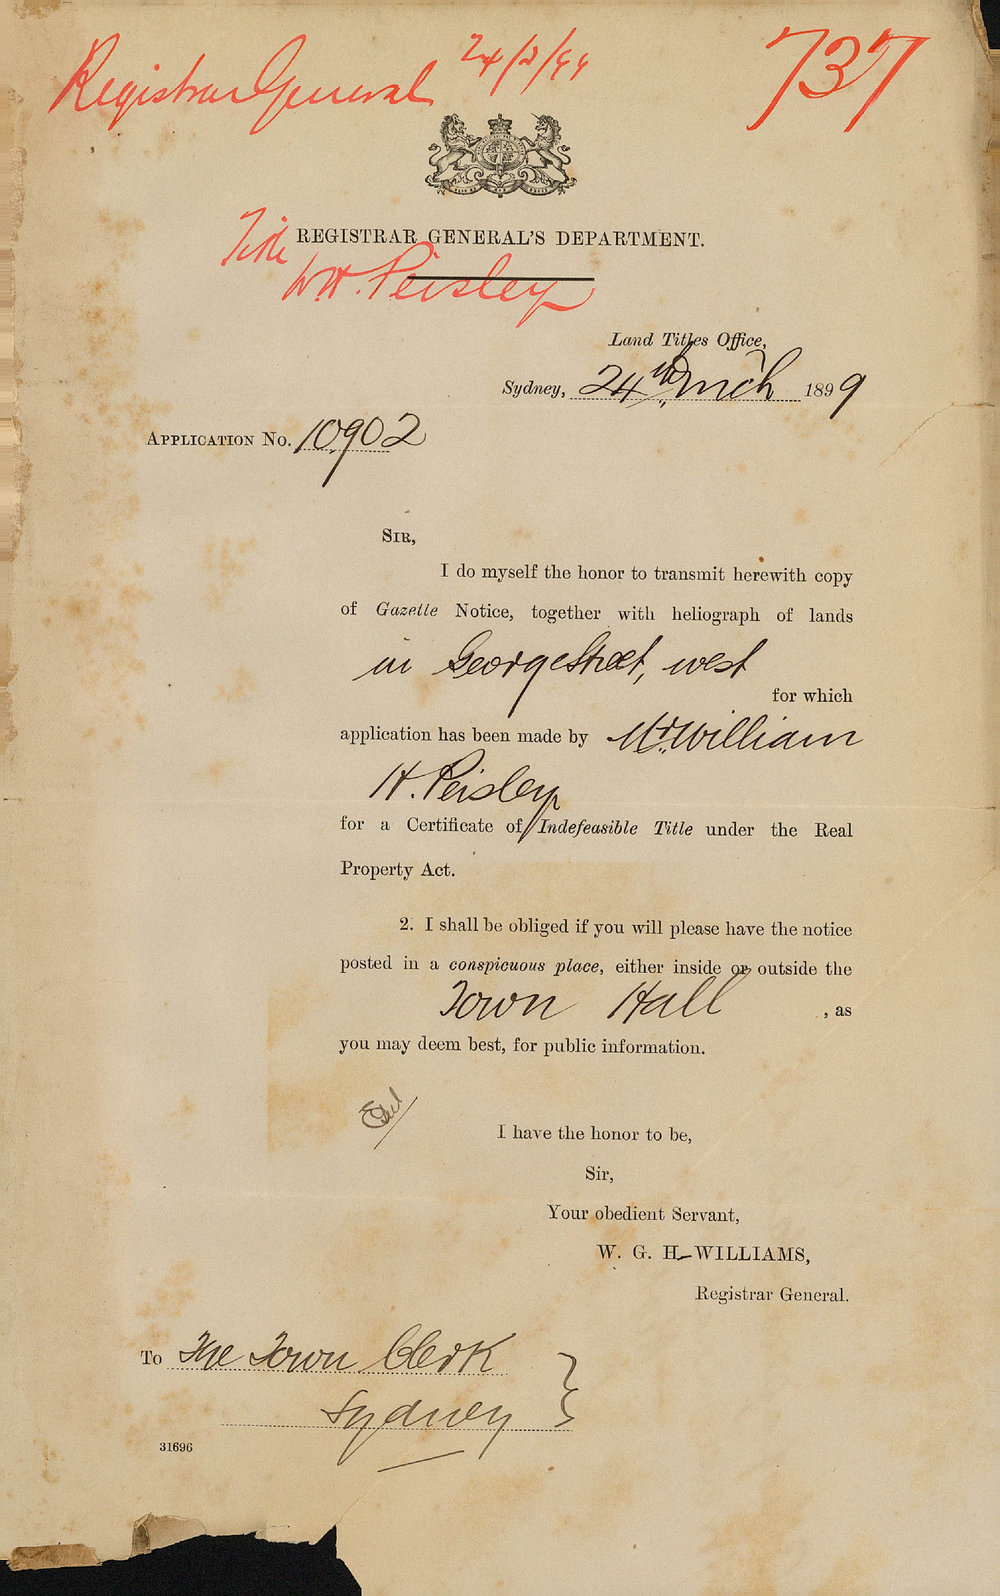 Registrar General 24/3/99
737
REGISTRAR GENERAL'S DEPARTMENT.
Title
W.H. Peisley
Land Titles Office,
Sydney, 24th March 1899
APPLICATION No. 10902
SIR,
I do myself the honor to transmit herewith copy
of Gazette Notice, together with heliograph of lands
in George Street, west
for which
application has been made by Mr. William
H. Peisley
for a Certificate of Indefeasible Title under the Real
Property Act.
2. I shall be obliged if you will please have the notice
posted in a conspicuous place, either inside or outside the
Town Hall , as
you may deem best, for public information.
I have the honor to be,
Sir,
Your obedient Servant,
W. G. H. WILLIAMS,
Registrar General.
To The Town Clerk
Sydney
31696